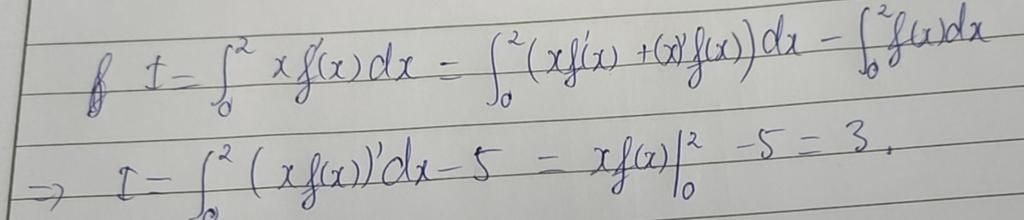 I = ∫₀² xf'(x)dx = ∫₀² (xf'(x) + (x)'f(x))dx − ∫₀² f(x)dx
⇒ I = ∫₀² (xf(x))'dx − 5 = xf(x)|₀² − 5 = 3.